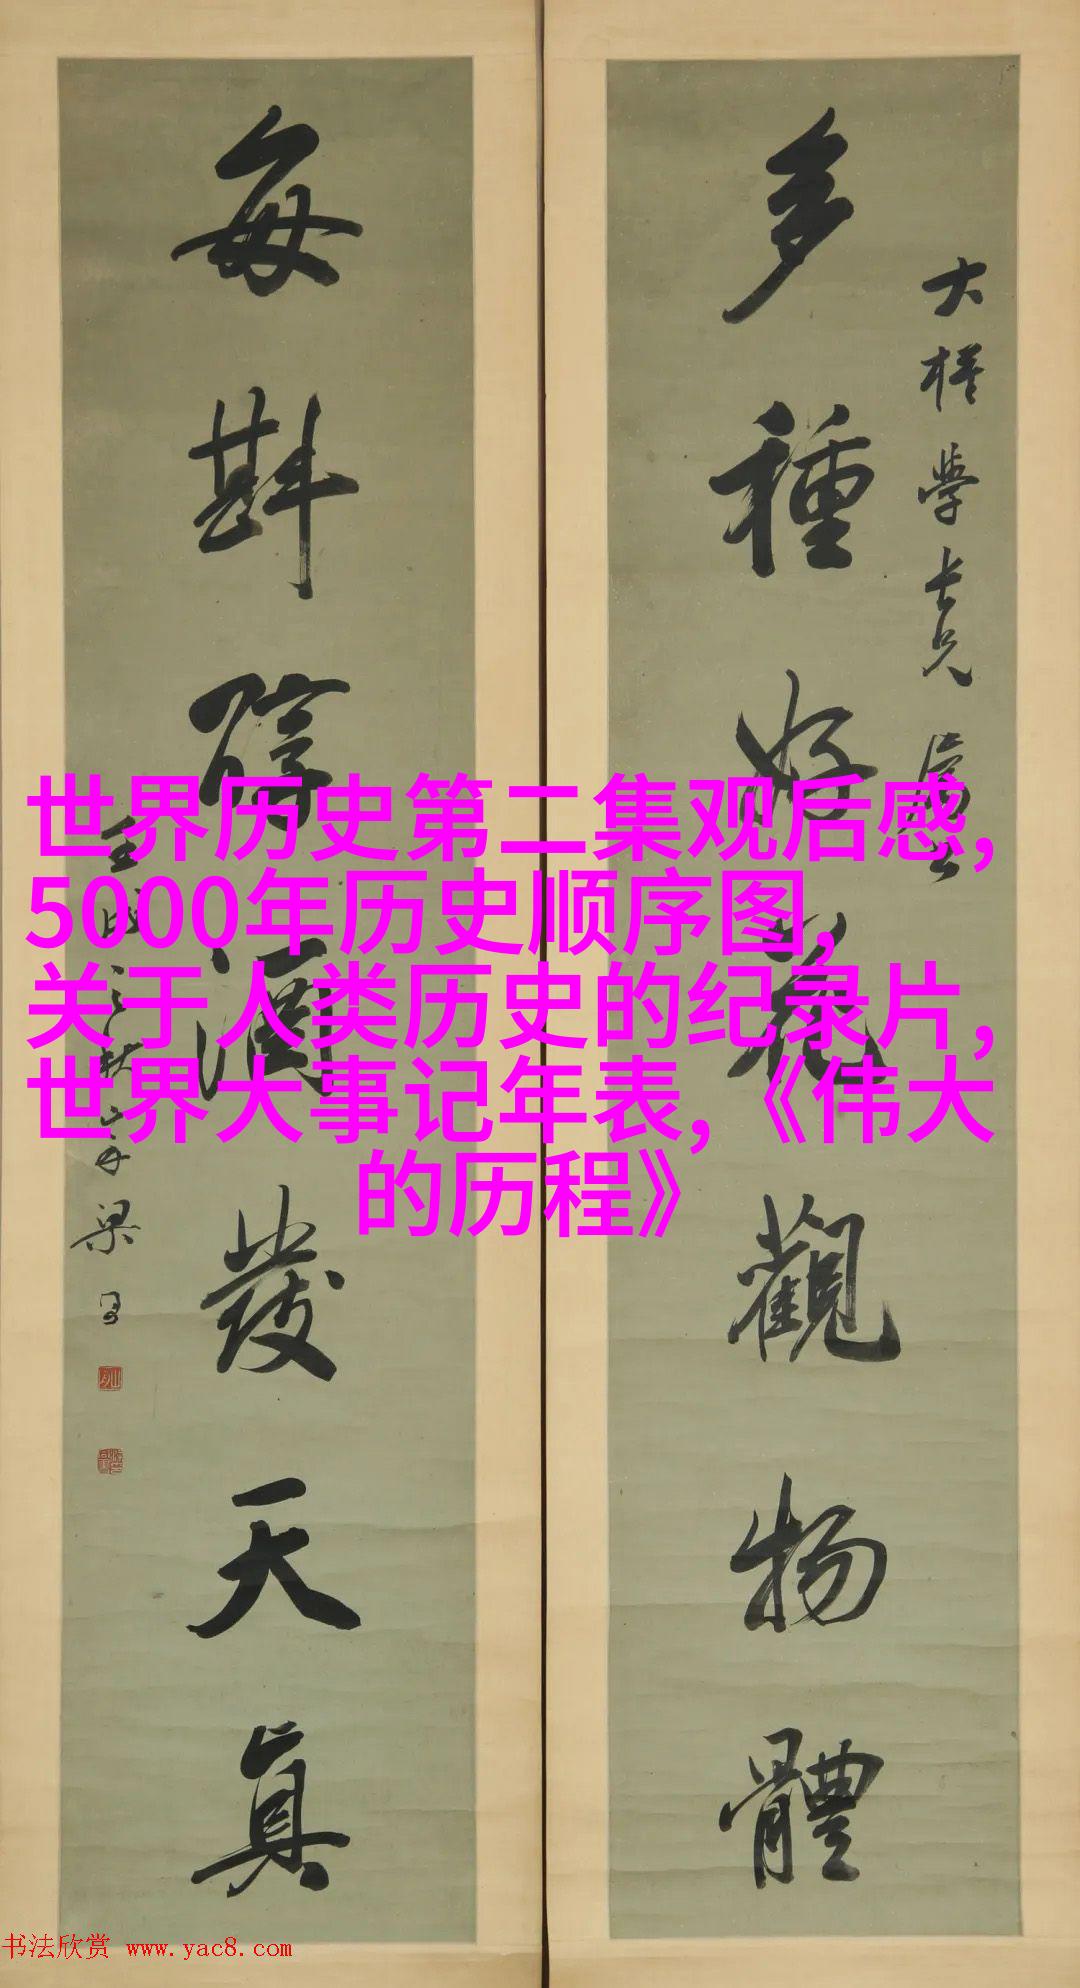 世界历史第二集观后感,
5000年历史顺序图,
关于人类历史的纪录片,
世界大事记年表,《伟大
的历程》
學長兄
多種好花觀物體
每斟醇酒發天真
壬戌之秋 梁
书法欣赏 www.yac8.com